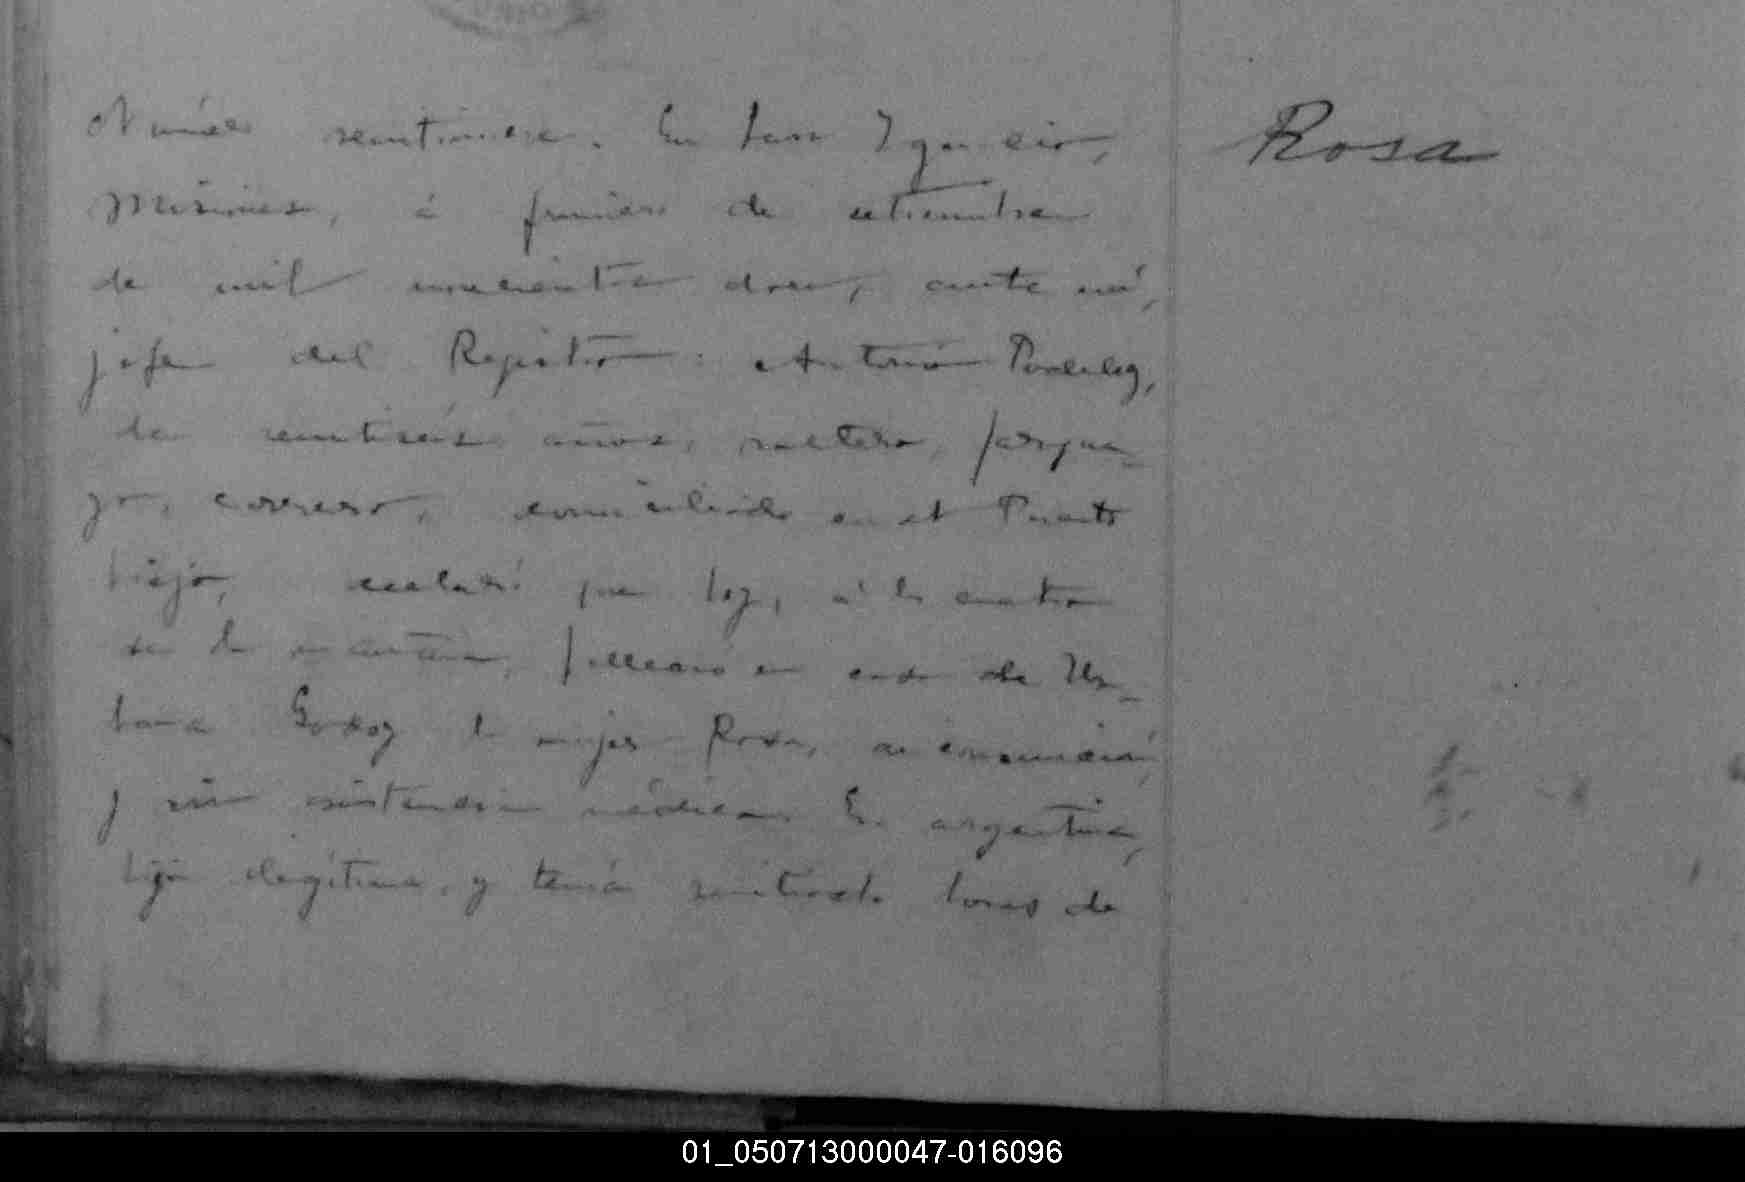 Número veintinueve. En San Ignacio,
Misiones, á primero de setiembre
de mil novecientos doce, ante mí,
jefe del Registro: Antonio
de veintiséis años, soltero, paragua-
yo, domiciliado en el Puerto
Viejo, declaró que hoy, á las cuatro
de la mañana, falleció en casa de Ur-
bana Godoy la mujer Rosa, de consunción,
y sin asistencia médica. Era argentina,
hija ilegítima, y tenía años de
Rosa
01_050713000047-016096